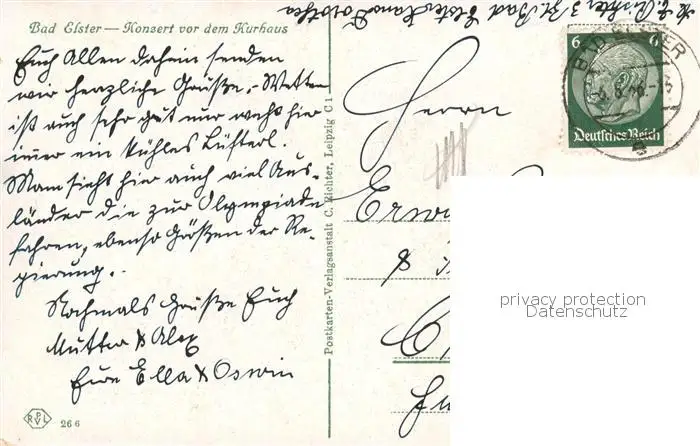 Bad Elster — Konzert vor dem Kurhaus
Euch Allen daheim senden
wir herzliche Grüße. - Wetter
ist auch sehr gut nur weht hier
immer ein kühles Lüfterl.
Mann sieht hier auch viel Aus-
länder die zur Olympiade
fahren, ebenso Größen der Re-
gierung.
Nochmals Grüße Euch
Mutter & Alex
Eure Ella & Oswin
PVRL 266
Postkarten-Verlagsanstalt C. Richter, Leipzig C 1
Bad Elster Haus Dorothea
6 6
Deutsches Reich
BAD ELSTER
Herrn
Erwi
privacy protection
Datenschutz